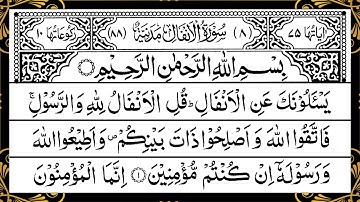 اٰيَاتُهَا ٧٥ (٨) سُوْرَةُ الْاَنْفَالِ مَدَنِيَّةٌ (٨٨) رُكُوْعَاتُهَا ١٠
بِسْمِ اللّٰهِ الرَّحْمٰنِ الرَّحِيْمِ
يَسْـَٔلُوْنَكَ عَنِ الْاَنْفَالِ ؕ قُلِ الْاَنْفَالُ لِلّٰهِ وَ الرَّسُوْلِ ۚ
فَاتَّقُوا اللّٰهَ وَ اَصْلِحُوْا ذَاتَ بَيْنِكُمْ ۪ وَ اَطِيْعُوا اللّٰهَ
وَ رَسُوْلَهٗۤ اِنْ كُنْتُمْ مُّؤْمِنِيْنَ ۝۱ اِنَّمَا الْمُؤْمِنُوْنَ